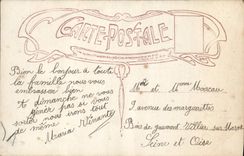 CARTE-POSTALE
Bien le bonjour à toute
la famille nous vous
embrassons bien
A dimanche ne vous
gênez pas si vous
sortez nous irons tout
de même
Maria
Mr et Mme Moreau
7 avenue des marguerittes
Bois de
Villier sur Marne
Seine et Oise